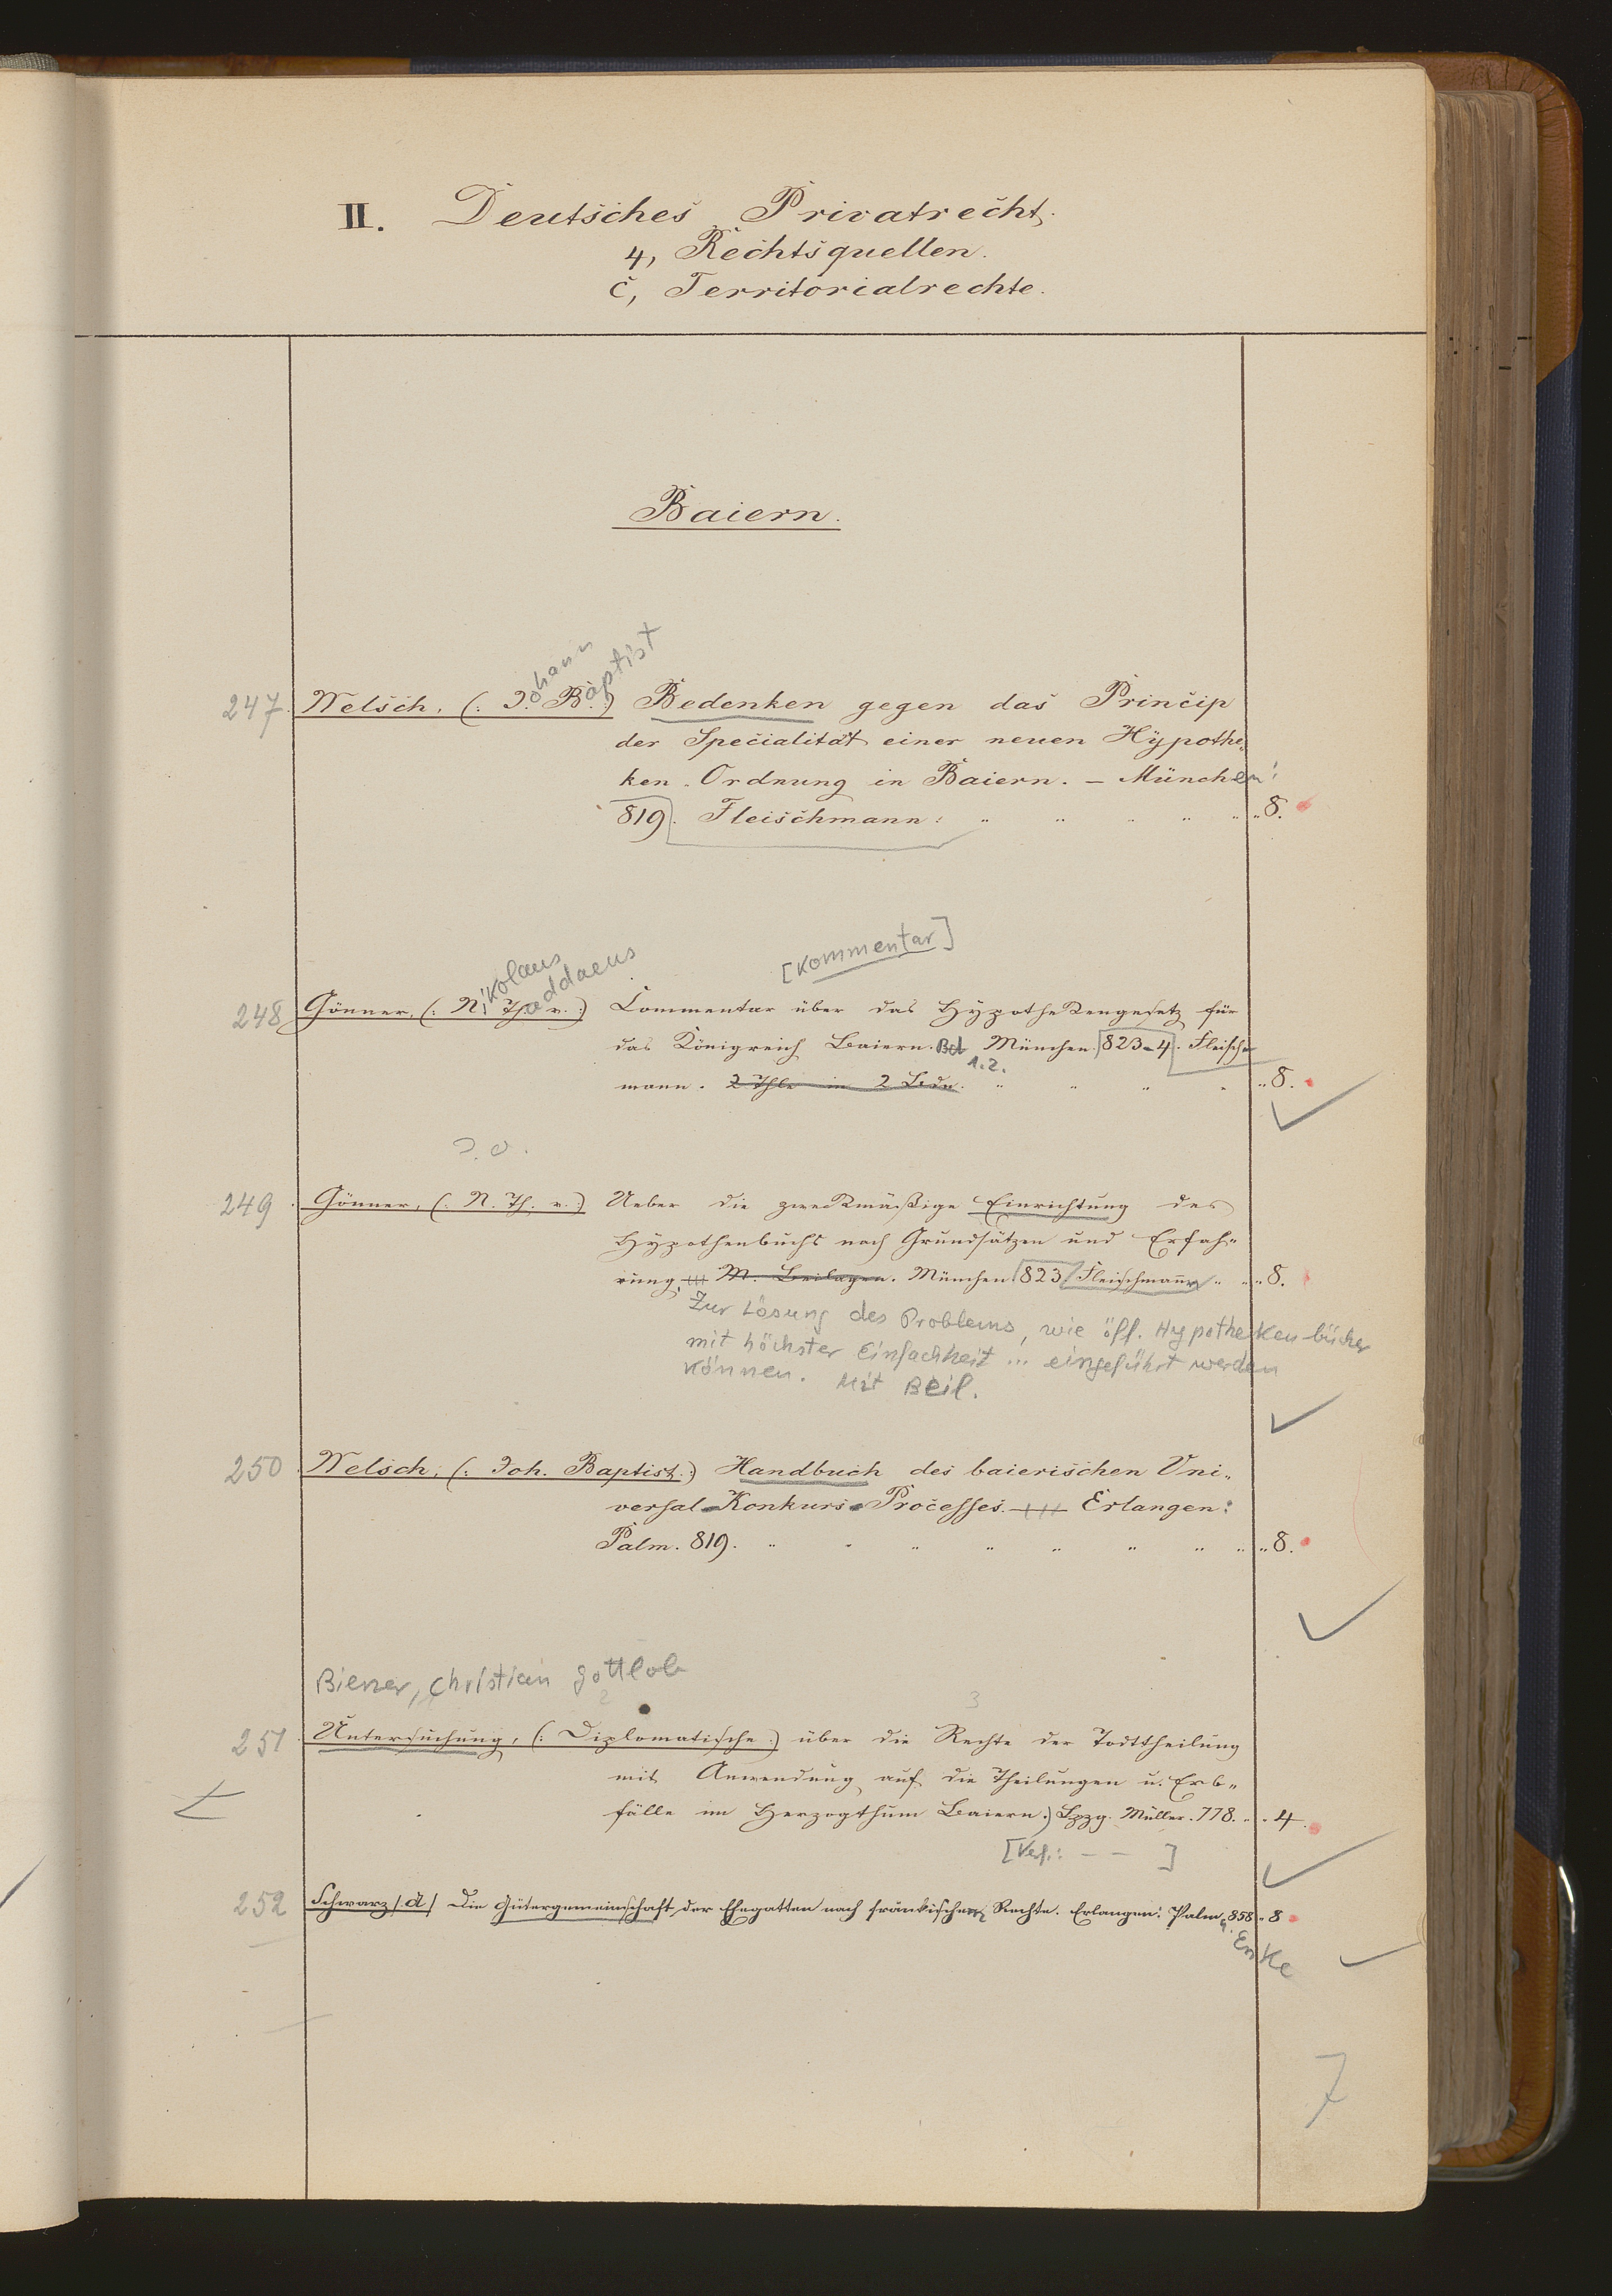 II. Deutsches Privatrecht.
4, Rechtsquellen.
c, Territorialrechte.
Baiern.
ohann aptist
247. Welsch, (: J. B. :) Bedenken gegen das Princip
der Specialität einer neuen Hypothe„
ken „ Ordnung in Baiern. – München:
819. Fleischmann: „ 8.
ikolaus addaeus [Kommentar]
248 Gönner, (: N. Th. v. :) Commentar über das Hypothekengesetz für
das Königreich Baiern. Bd München. 823-4. Fleisch„
1.2.
mann. 2 Thle in 2 Bdn. „ 8.
249 Gönner, (: N. Th. v. :) Ueber die zweckmäßige Einrichtung des
Hypothenbuchs nach Grundsätzen und Erfah„
rung. M. Beilagen. München 823 Fleischmann „ 8.
Zur Lösung des Problems, wie öff. Hypotheken-bücher
mit höchster Einfachheit ... eingeführt werden
können. Mit Beil.
250 Welsch, (: Joh. Baptist. :) Handbuch des baierischen Uni„
versal-Konkurs-Processes. Erlangen:
Palm. 819. „ 8.
Biener, Christian Gottlob
2 3
251 Untersuchung, (: Diplomatische :) über die Rechte der Todttheilung
mit Anwendung auf die Theilungen u. Erb„
fälle im Herzogthum Baiern.) Lpzg. Müller. 778. „ 4.
[Verf.: – – ]
252 Schwarz /:A:/ Die Gütergemeinschaft der Ehegatten nach fränkischem Rechte. Erlangen: Palm 858 „ 8
u. Enke
7